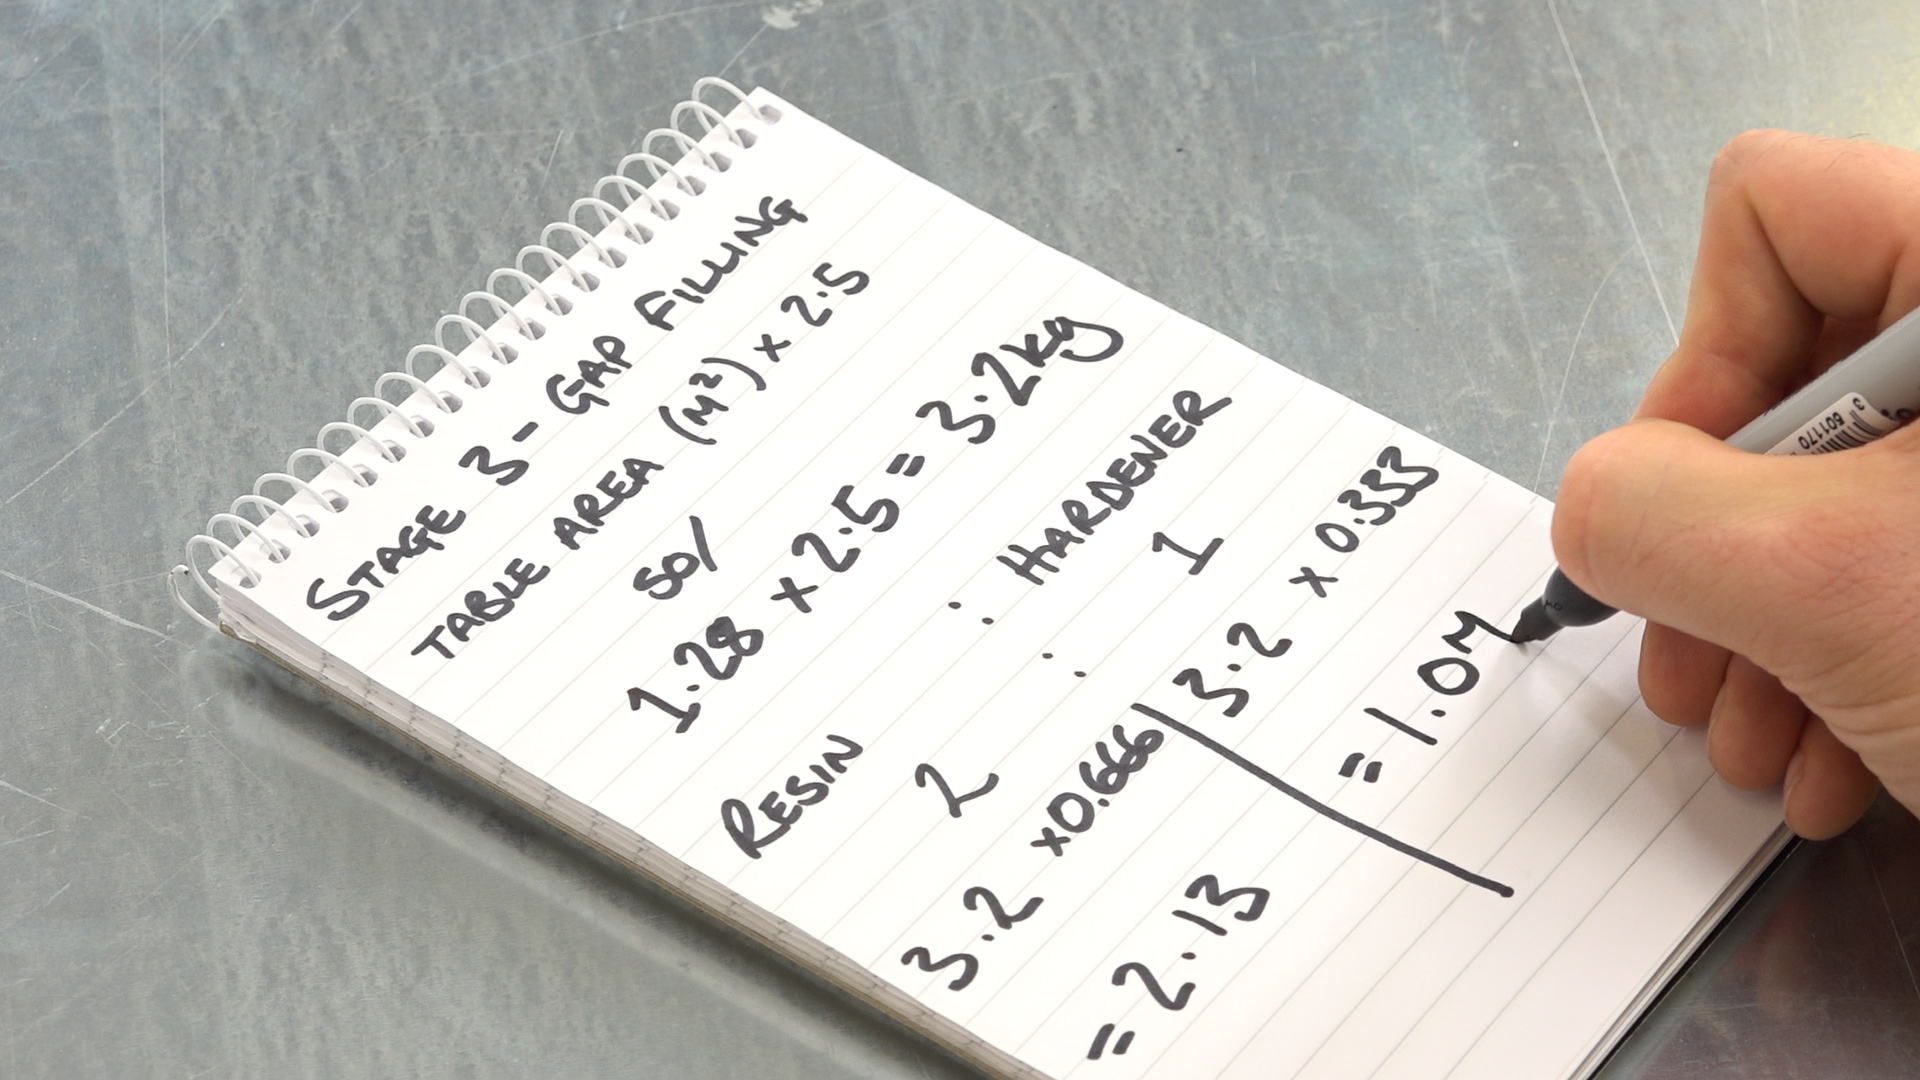 STAGE 3 - GAP FILLING
TABLE AREA (M²) x 2.5
50/
1.28 x 2.5 = 3.2kg
RESIN : HARDENER
2 : 1
3.2 x0.666 | 3.2 x 0.333
= 2.13
= 1.0
3 501170